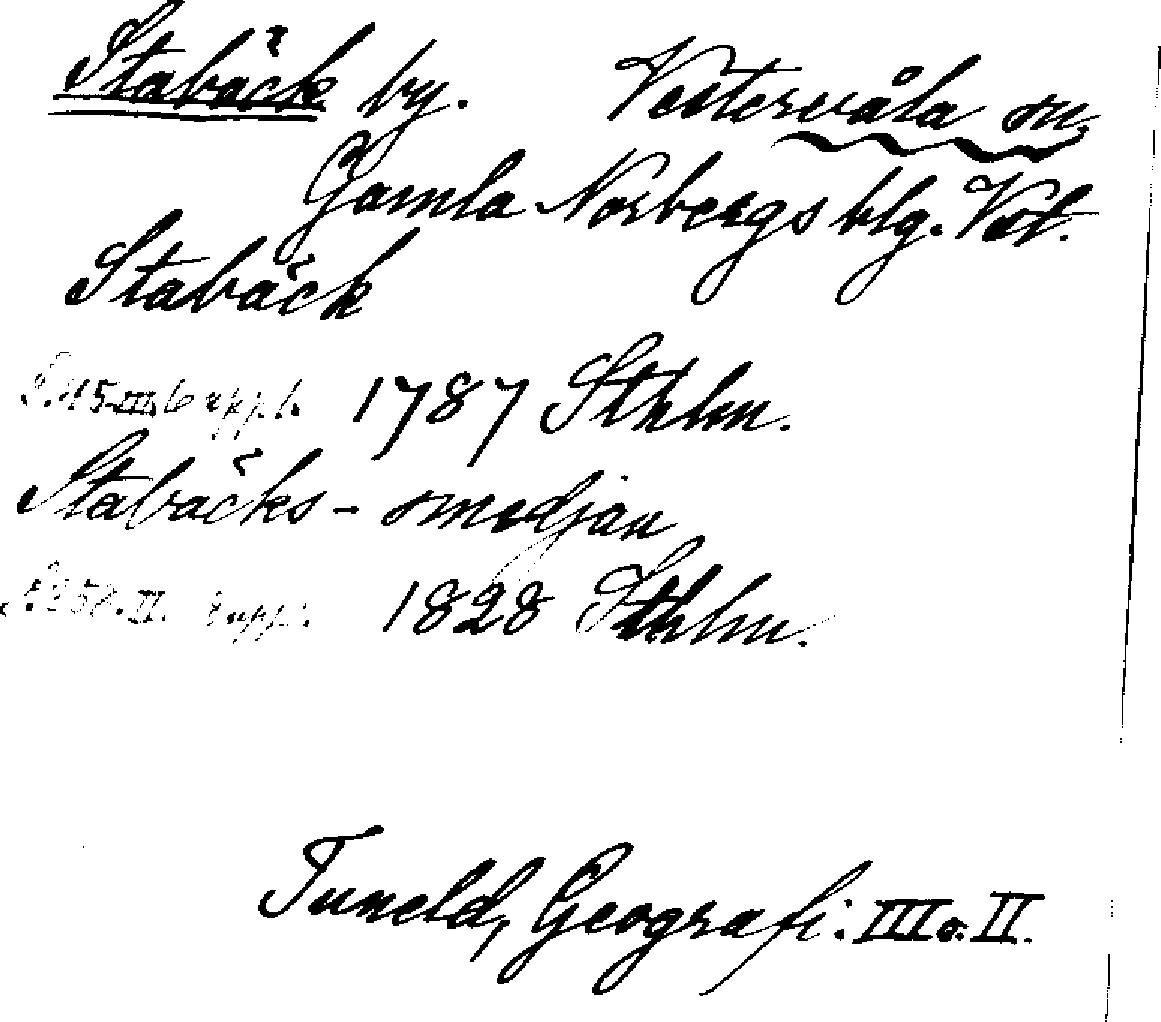 Stabäck by. Vestervåla sn,
Gamla Norbergs blg. Vstl.
Stabäck
S. 115. III. 6 uppl. 1787 Sthlm.
Stabäcks-smedjan
II. 8 uppl. 1828 Sthlm.
Tuneld, Geografi. III o. II.